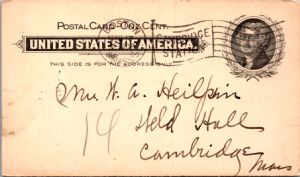 POSTAL CARD ONE CENT.
UNITED STATES OF AMERICA.
THIS SIDE IS FOR THE ADDRESS ONLY
BOSTON
MASS
CAMBRIDGE
STATION
Mr. W. A. Heilprin
14 Weld Hall
Cambridge
Mass